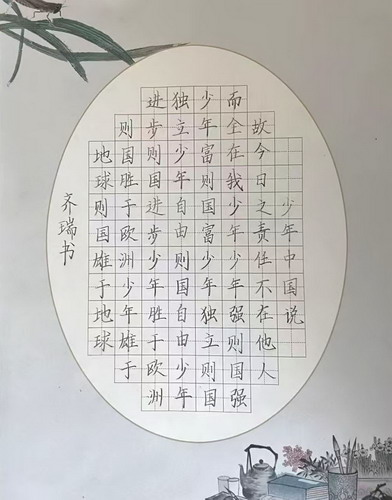 少年中国说
故今日之责任不在他人
而全在我少年少年强则国强
少年富则国富少年独立则国
独立少年自由则国自由少年
进步则国进步少年胜于欧洲
则国胜于欧洲少年雄于
地球则国雄于地球
齐瑞书